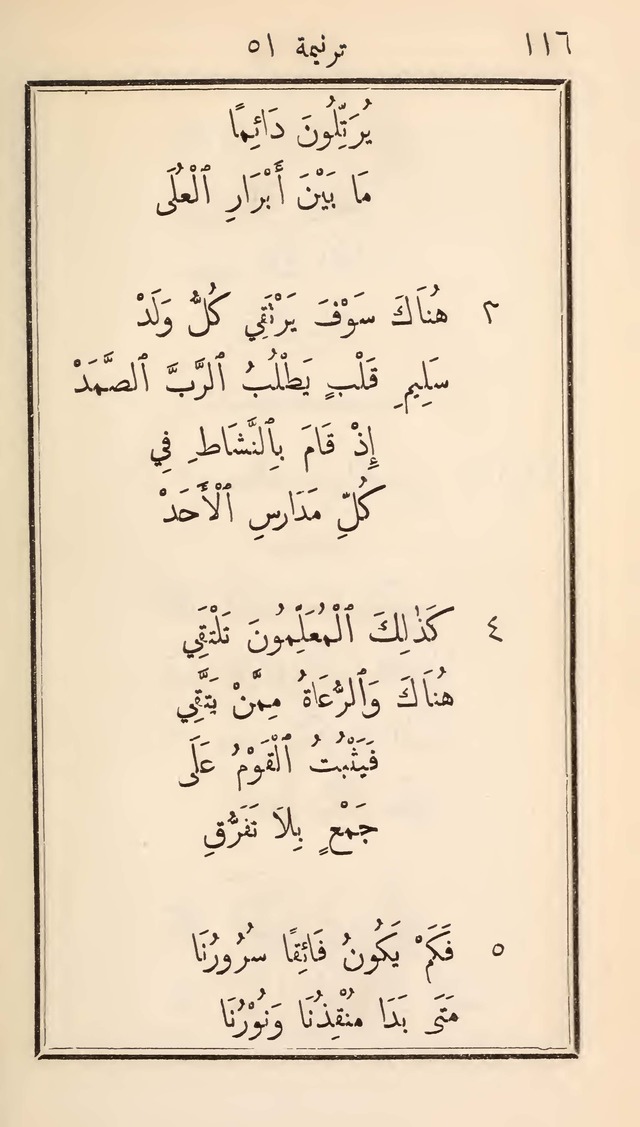 ١١٦ ترنيمة ٥١
يُرَتِّلُونَ دَائِمًا
مَا بَيْنَ أَبْرَارِ ٱلْعُلَى
٣ هُنَاكَ سَوْفَ يَرْتَقِي كُلُّ وَلَدْ
سَلِيمِ قَلْبٍ يَطْلُبُ ٱلرَّبَّ ٱلصَّمَدْ
إِذْ قَامَ بِٱلنَّشَاطِ فِي
كُلِّ مَدَارِسِ ٱلْأَحَدْ
٤ كَذٰلِكَ ٱلْمُعَلِّمُونَ تَلْتَقِي
هُنَاكَ وَٱلرُّعَاةُ مِمَّنْ يَتَّقِي
فَيَثْبُتُ ٱلْقَوْمُ عَلَى
جَمْعٍ بِلَا تَفَرُّقِ
٥ فَكَمْ يَكُونُ فَائِقًا سُرُورُنَا
مَتَى بَدَا مُنْقِذُنَا وَنُوْرُنَا